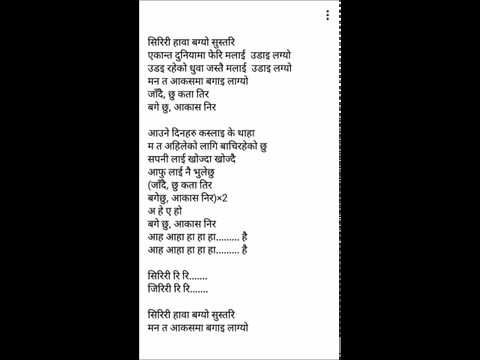 सिरिरी हावा बग्यो सुस्तरि
एकान्त दुनियामा फेरि मलाईं  उडाइ लग्यो
उडइ रहेको धुवा जस्तै मलाईं  उडाइ लग्यो
मन त आकसमा बगाइ लाग्यो
जाँदै, छु कता तिर
बगे छु, आकास निर
आउने दिनहरु कस्लाइ के थाहा
म त अहिलेको लागि बाचिरहेको छु
सपनी लाई खोज्दा खोज्दै
आफु लाईं नै भुलेछु
(जाँदै, छु कता तिर
बगेछु, आकास निर)×2
अ हे ए हो
बगे छु, आकास निर
आह आहा हा हा हा......... है
आह आहा हा हा हा......... है
सिरिरी रि रि.......
जिरिरी रि रि.......
सिरिरी हावा बग्यो सुस्तरि
मन त आकसमा बगाइ लाग्यो